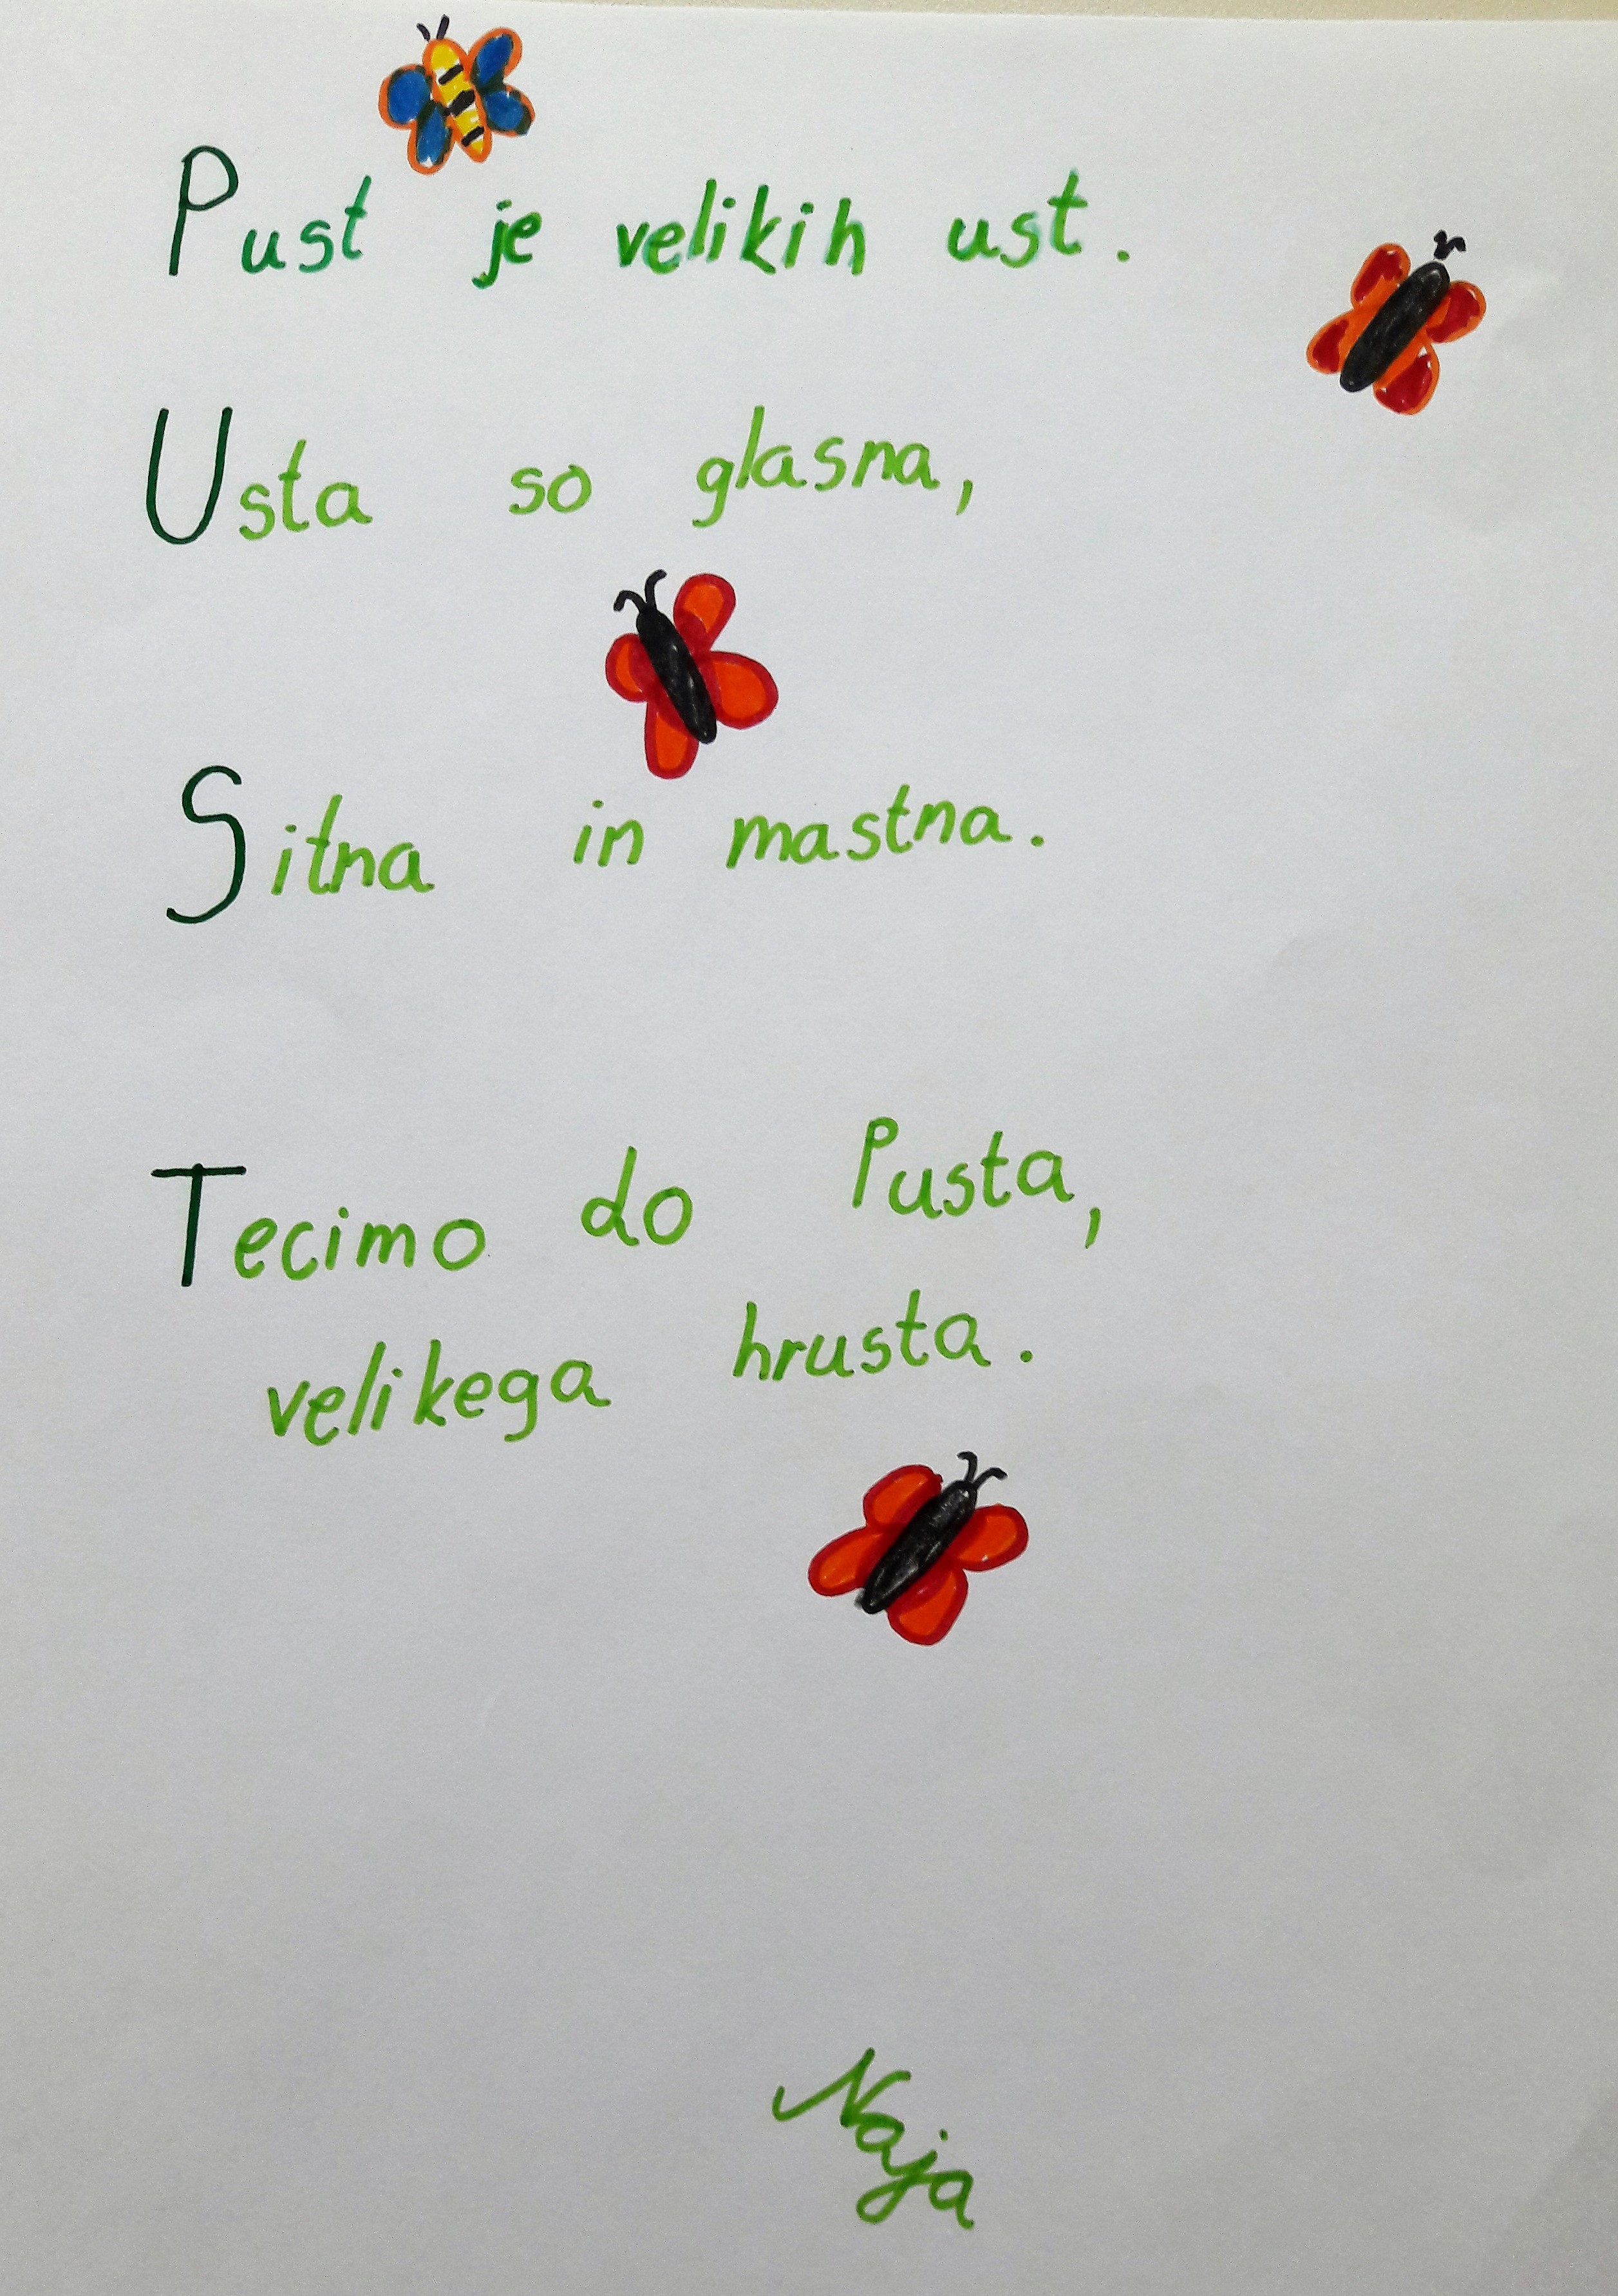 Pust je velikih ust.
Usta so glasna,
Sitna in mastna.
Tecimo do Pusta,
velikega hrusta.
Naja